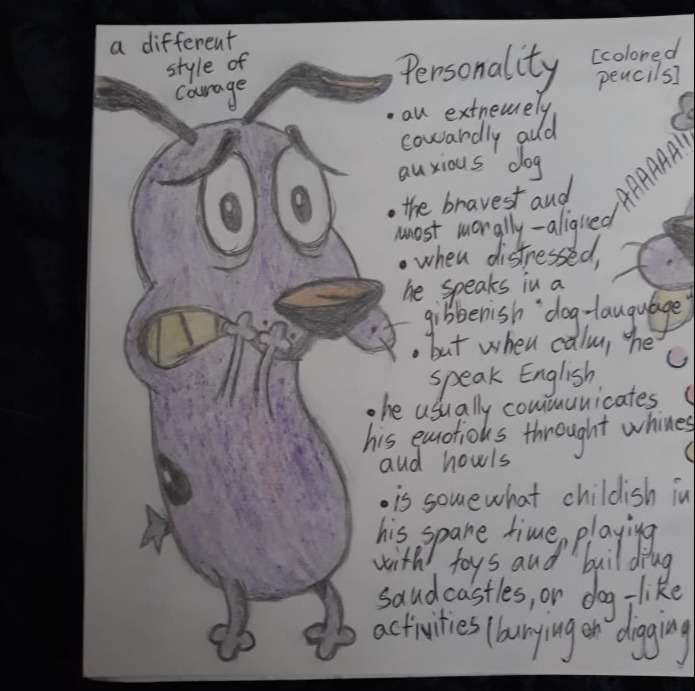 a different
style of
Courage
Personality
[colored
pencils]
• an extremely
cowardly and
anxious dog
• the bravest and
most morally-aligned
• when distressed,
he speaks in a
gibberish "dog-language"
• but when calm, he
speak English
• he usually communicates
his emotions throught whines
and howls
• is somewhat childish in
his spare time, playing
with toys and building
sandcastles, or dog-like
activities (burying or digging
AAAAAAA